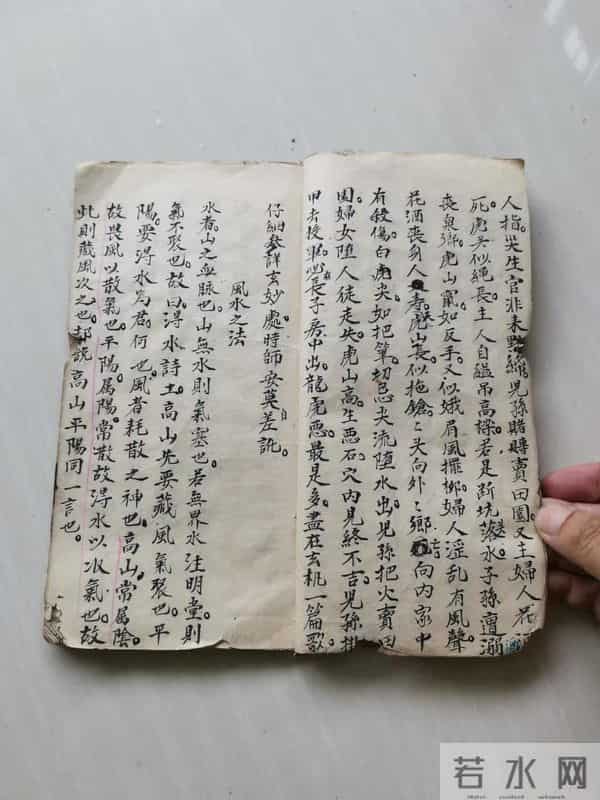 人指尖生官非未點繩兒孫賭賻賣田園又主婦人花
死虎头似繩長主人自縊吊高樑若是斷坑落水子孫遭溺
喪泉鄉虎山竄如反手又似娥眉風擺柳婦人淫乱有風聲
花酒喪身人虎山長似拖鎗々头向外々鄉向内家中
有殺傷白虎尖如把筆切忌尖流堕水出兒孫把火賣田
園婦女堕人徒走失虎山高生悪石穴内見終不吉兒孫掛
甲去投軍必長子房中出龍虎悪最是多盡在玄机一篇歌
仔細叅詳玄妙處時師安莫差訛
風水之法
水者山之血脉也山無水則氣塞也若無界水注明堂則
氣不聚也故曰淂水詩土高山先要藏風氣聚也平
陽要淂水為君何也風者耗散之神也高山常属陰
故畏風以散氣也平陽属陽常散故淂水以氷氣也故
此則蔵風次之也却説高山平陽同一言也
若水网